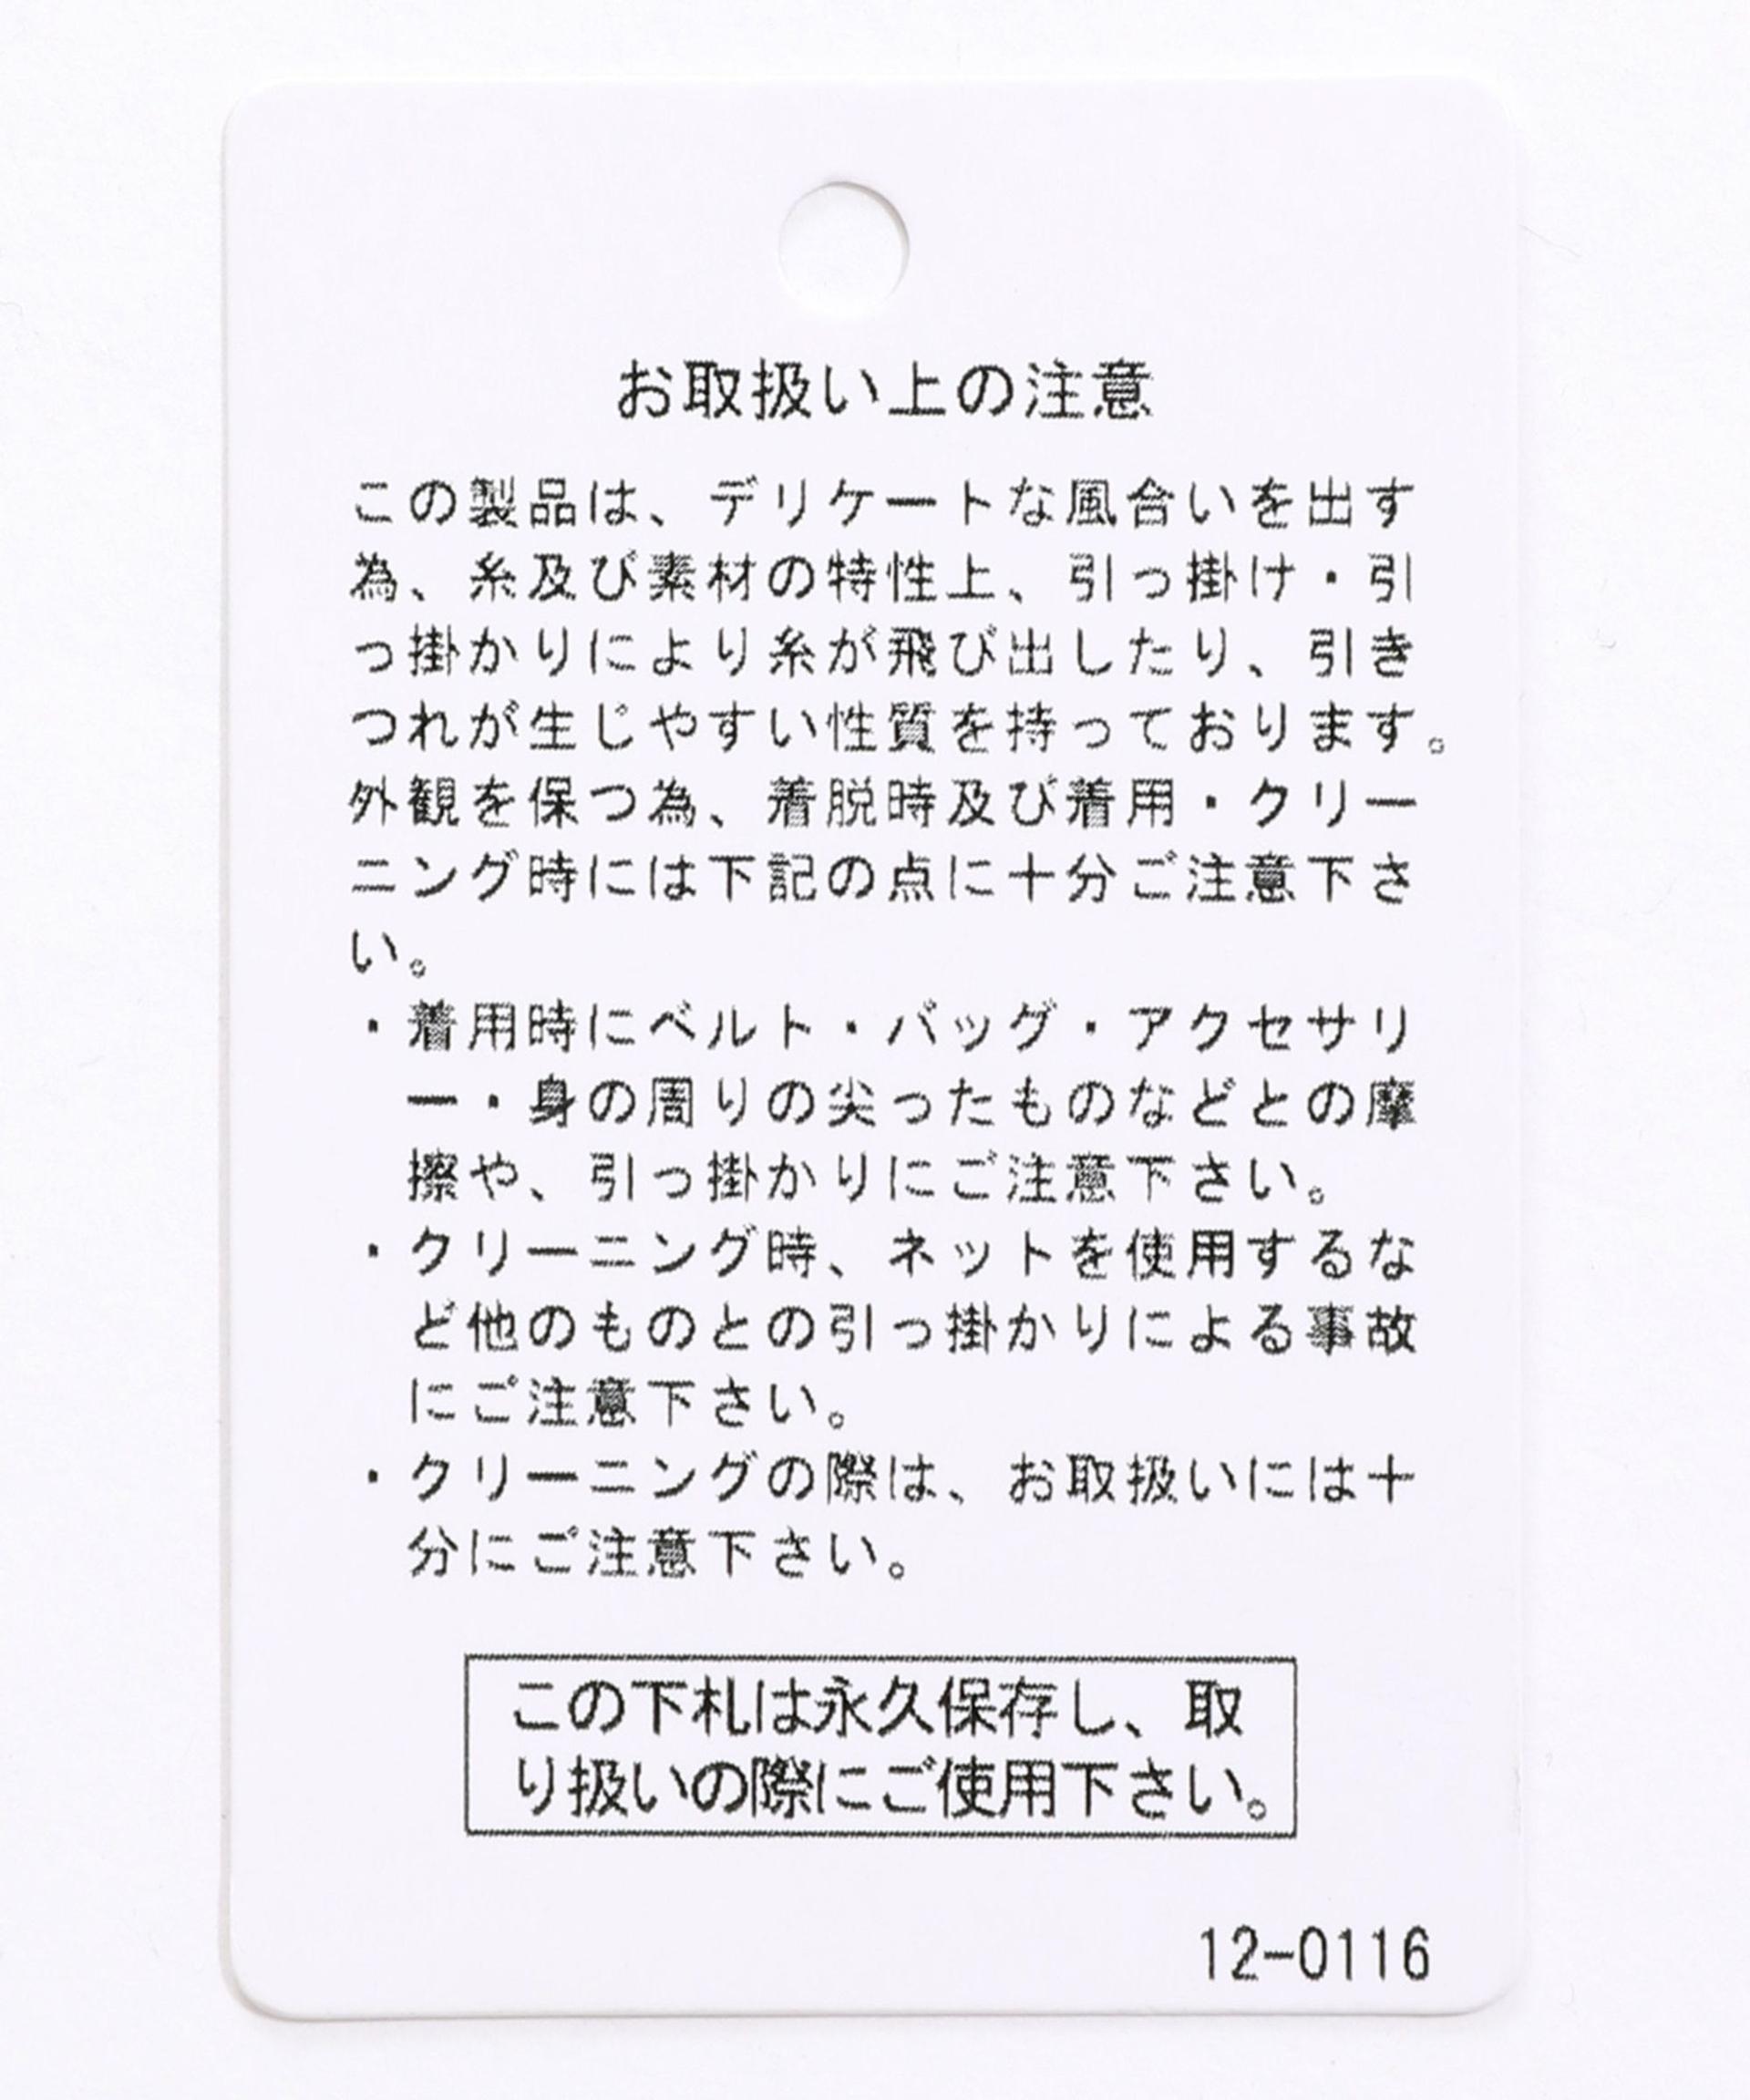 お取扱い上の注意
この製品は、デリケートな風合いを出す
為、糸及び素材の特性上、引っ掛け・引
っ掛かりにより糸が飛び出したり、引き
つれが生じやすい性質を持っております。
外観を保つ為、着脱時及び着用・クリー
ニング時には下記の点に十分ご注意下さ
い。
・着用時にベルト・バッグ・アクセサリ
ー・身の周りの尖ったものなどとの摩
擦や、引っ掛かりにご注意下さい。
・クリーニング時、ネットを使用するな
ど他のものとの引っ掛かりによる事故
にご注意下さい。
・クリーニングの際は、お取扱いには十
分にご注意下さい。
この下札は永久保存し、取
り扱いの際にご使用下さい。
12-0116